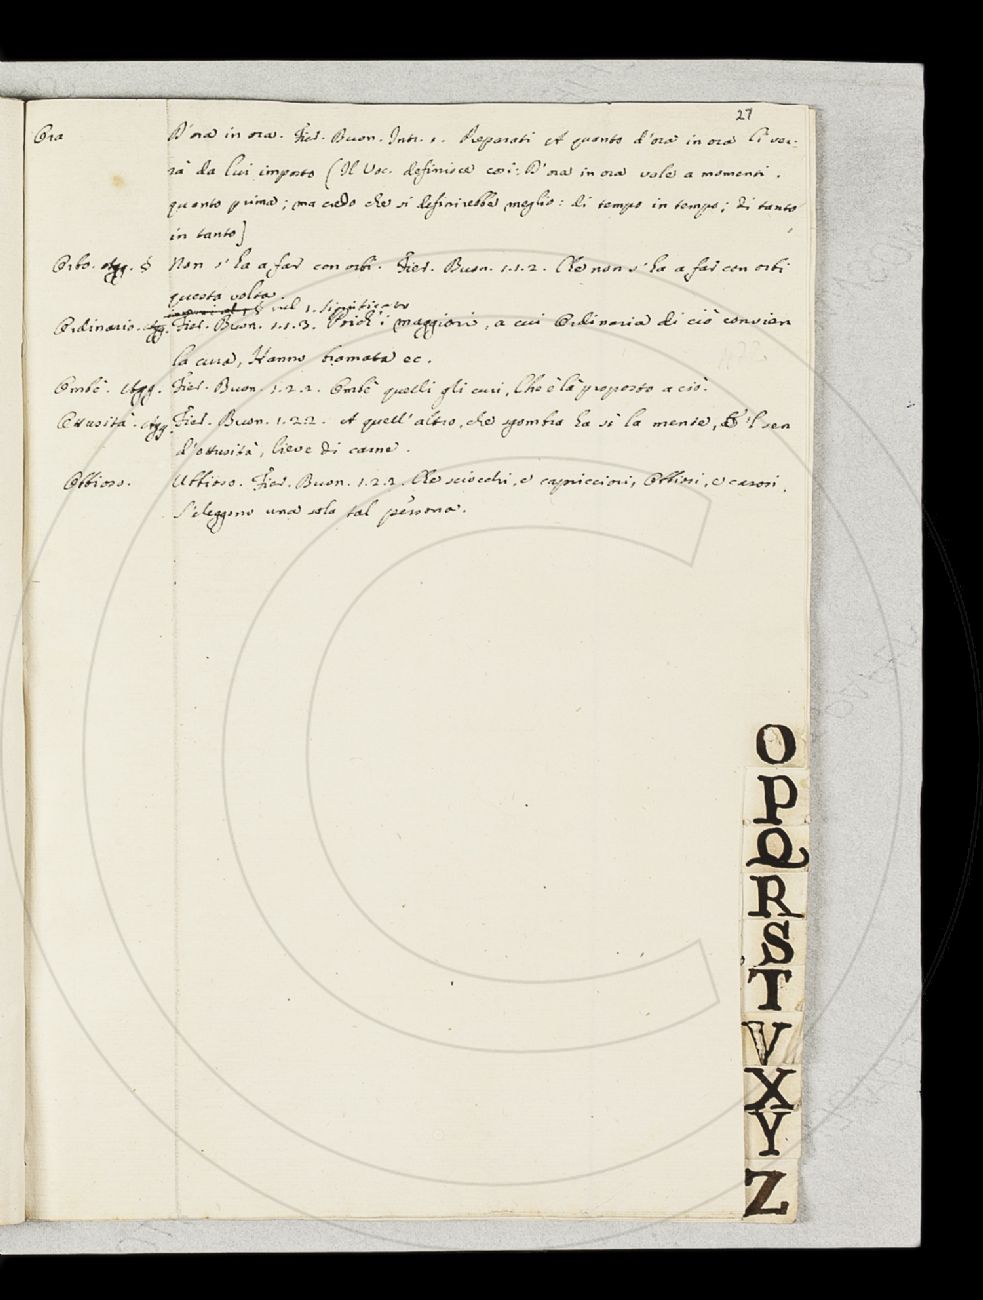 27
Ora D'ora in ora. Fier. Buon. Intr. 1. Preparati A quanto d'ora in ora ti ver-
rà da lui imposto (Il Voc. definisce così: D'ora in ora vale a momenti.
quanto prima; ma credo che si definirebbe meglio: di tempo in tempo; di tanto
in tanto]
Orbo. Agg. § Non s'ha a far con orbi. Fier. Buon. 1.1.2. Che non s'ha a far con orbi
questa volta.
sul 1. significato
Ordinario. Agg. Fier. Buon. 1.1.3. Poich' i maggiori, a cui Ordinaria di ciò convien
la cura, Hanno bramata ec.
Orsbè. Agg. Fier. Buon. 1.2.2. Orsbè quelli gli curi, Che è là proposto a ciò.
Ottusità. Agg. Fier. Buon. 1.2.2. A quell' altro, che sgombra ha sì la mente, E 'l sen
d'ottusità, lieve di carne.
Obbioso. Ubbioso. Fier. Buon. 1.2.2. Che sciocchi, e capricciosi, Obbiosi, e casosi.
S'eleggono una sola tal persona.
O
P
Q
R
S
T
V
X
Y
Z